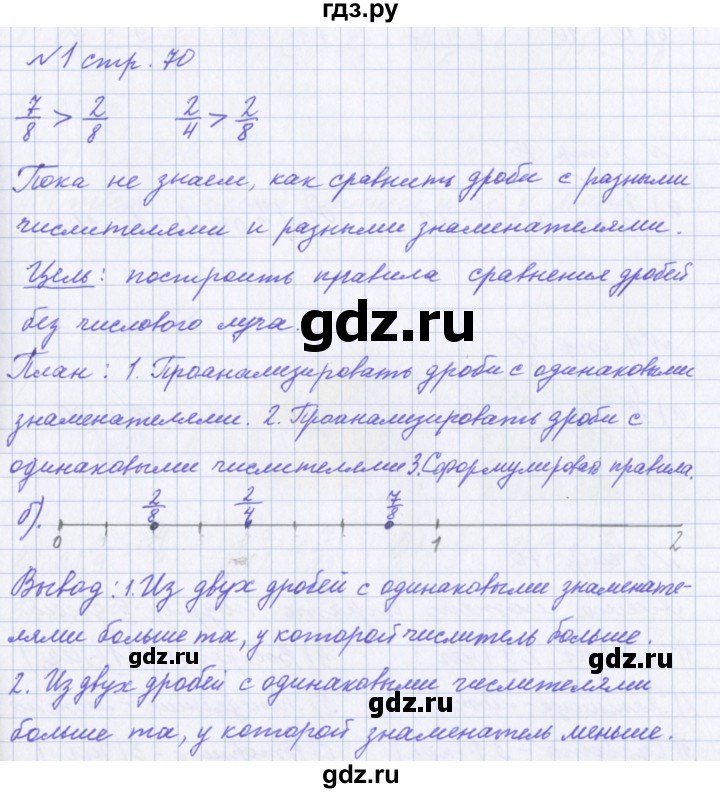 гдз.ру
№1 стр. 70
7/8 > 2/8   2/4 > 2/8
Пока не знаем, как сравнить дроби с разными
числителями и разными знаменателями.
Цель: построить правила сравнения дробей
без числового луча.
gdz.ru
План: 1. Проанализировать дроби с одинаковыми
знаменателями. 2. Проанализировать дроби с
одинаковыми числителями 3. Сформулировать правила.
б). 2/8 2/4 7/8
0 1 2
Вывод: 1. Из двух дробей с одинаковыми знаменате-
лями больше та, у которой числитель больше.
gdz.ru gdz.ru
2. Из двух дробей с одинаковыми числителями
gdz.ru gdz.ru
больше та, у которой знаменатель меньше.
gdz.ru